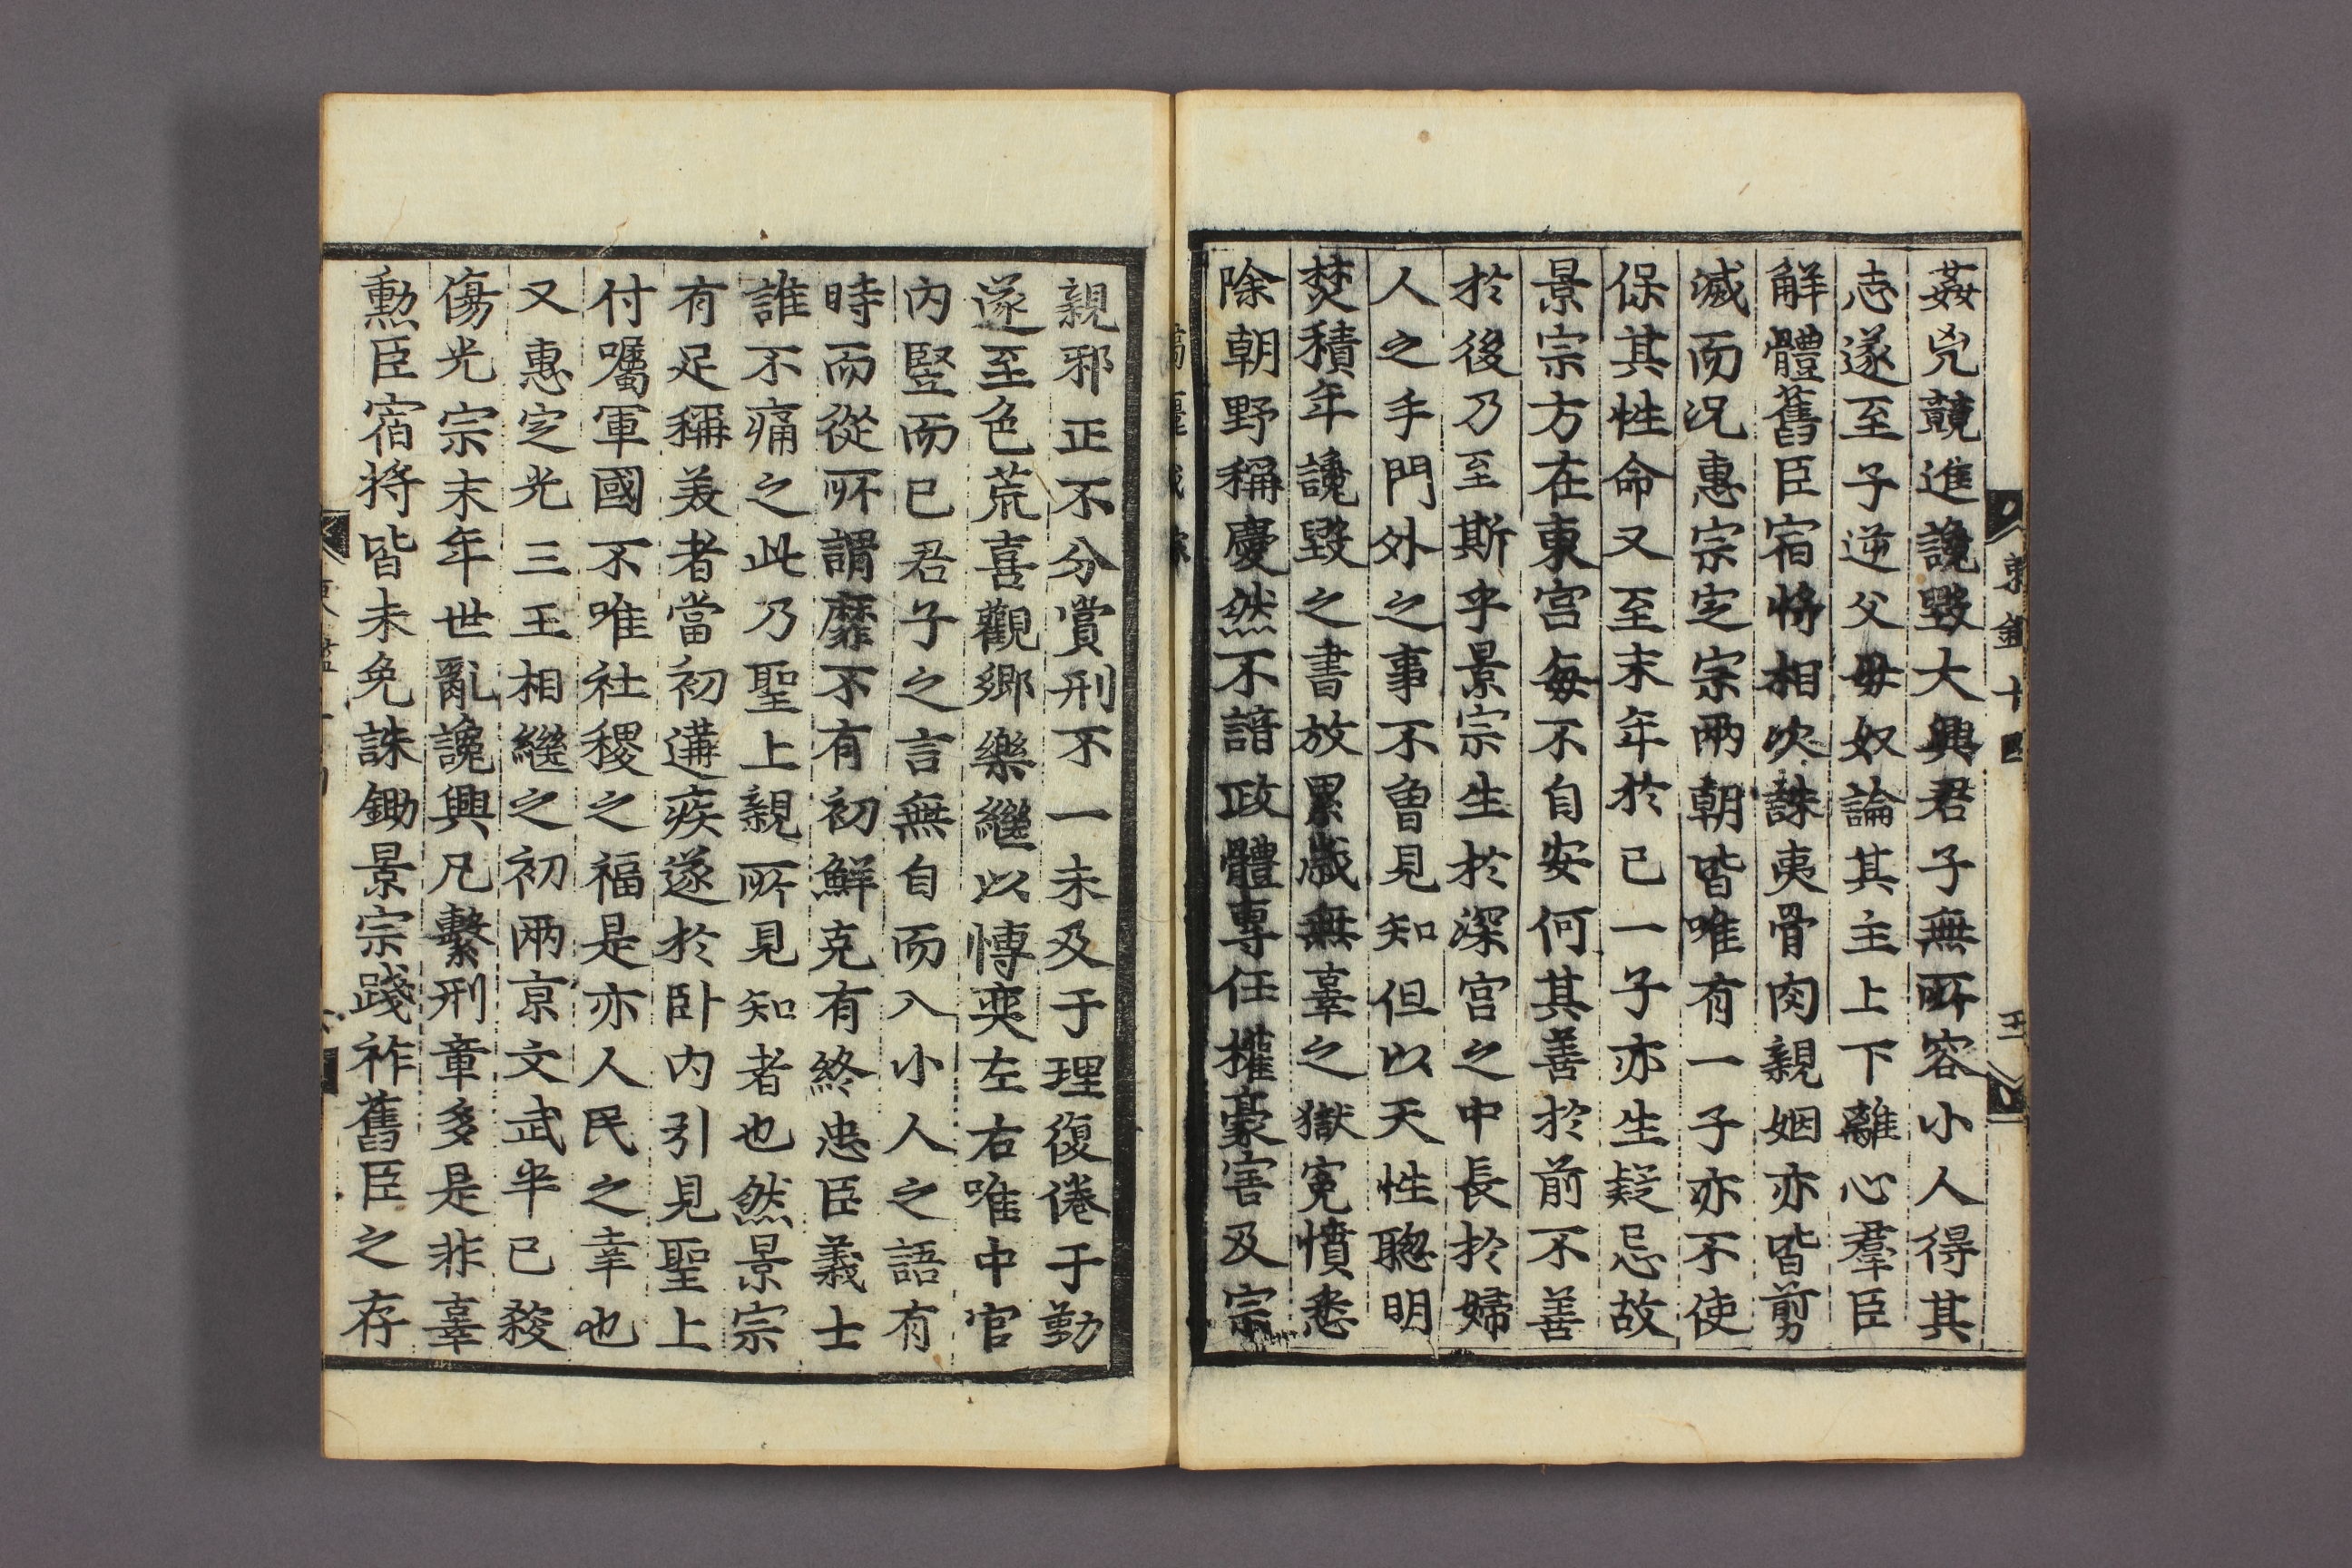 姦兇競進讒毀大興君子無所容小人得其
志遂至子逆父母奴論其主上下離心羣臣
解體舊臣宿將相次誅夷骨肉親姻亦皆剪
滅而况惠宗㝎宗兩朝皆唯有一子亦不使
保其性命又至末年於已一子亦生疑忌故
景宗方在東宫每不自安何其善於前不善
於後乃至斯乎景宗生於深宫之中長於婦
人之手門外之事不曾見知但以天性聰明
焚積年讒毀之書放累歲無辜之獄寃憤悉
除朝野稱慶然不諳政體專任權豪害及宗
東鑑十四
親邪正不分賞刑不一未及于理復倦于勤
遂至色荒喜觀鄉樂繼以愽奕左右唯中官
內豎而已君子之言無自而入小人之語有
時而從所謂靡不有初鮮克有終忠臣義士
誰不痛之此乃聖上親所見知者也然景宗
有足稱美者當初遘疾遂於卧内引見聖上
付囑軍國不唯社稷之福是亦人民之幸也
又惠㝎光三王相繼之初兩京文武半已殺
傷光宗末年世亂讒興凡繫刑章多是非辜
勲臣宿將皆未免誅鋤景宗踐祚舊臣之存